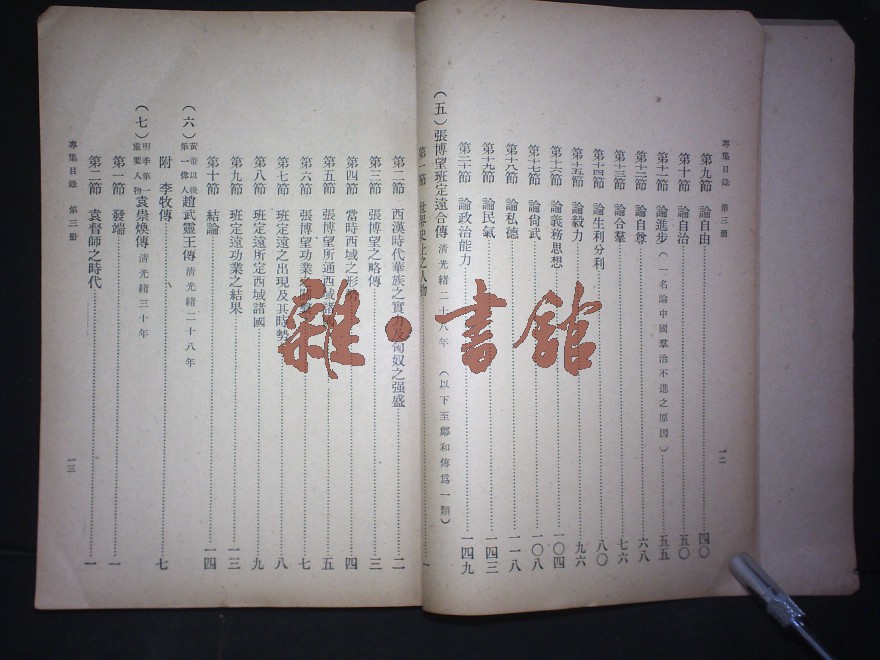 專集目錄 第三册
一二
第九節 論自由 四〇
第十節 論自治 五〇
第十一節 論進步(一名論中國羣治不進之原因) 五五
第十二節 論自尊 六八
第十三節 論合羣 七六
第十四節 論生利分利 八〇
第十五節 論毅力 九六
第十六節 論義務思想 一〇四
第十七節 論尙武 一〇八
第十八節 論私德 一一八
第十九節 論民氣 一四三
第二十節 論政治能力 一四九
(五)張博望班定遠合傳 清光緒二十八年 (以下至鄭和傳爲一類)
第一節 世界史上之人物 一
第二節 西漢時代華族之實力及匈奴之强盛 二
第三節 張博望之略傳 三
第四節 當時西域之形 四
第五節 張博望所通西域諸 五
第六節 張博望功業 七
第七節 班定遠之出現及其時勢 八
第八節 班定遠所定西域諸國 九
第九節 班定遠功業之結果 一三
第十節 結論 一四
(六)黃帝以後第一偉人趙武靈王傳 清光緒二十八年
附 李牧傳 七
(七)明季第一重要人物袁崇煥傳 清光緒三十年
第一節 發端 一
第二節 袁督師之時代 一
專集目錄 第三册
一三
雜·書館